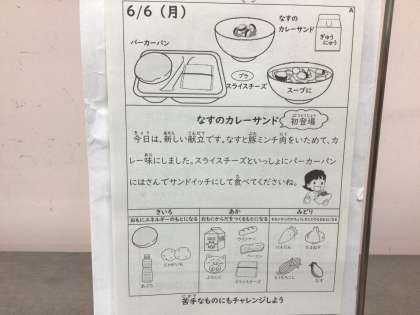 6/6（月）
A
なすの
カレーサンド
ぎゅう
にゅう
バーカーパン
プラ
スライスチーズ
スープに
なすのカレーサンド
はつとうじょう
初登場
今日は、新しい献立です。なすと豚ミンチ肉をいためて、カ
レー味にしました。スライスチーズといっしょにバーカーパン
にはさんでサンドイッチにして食べてくださいね。
きいろ
あか
みどり
おもにエネルギーのもとになる
おもにからだをつくるもとになる
じゃがいも
あぶら
ぶたにく
スライスチーズ
ウインナー
ベーコン
にんじん
たまねぎ
とうもろこし
なす
苦手なものにもチャレンジしよう